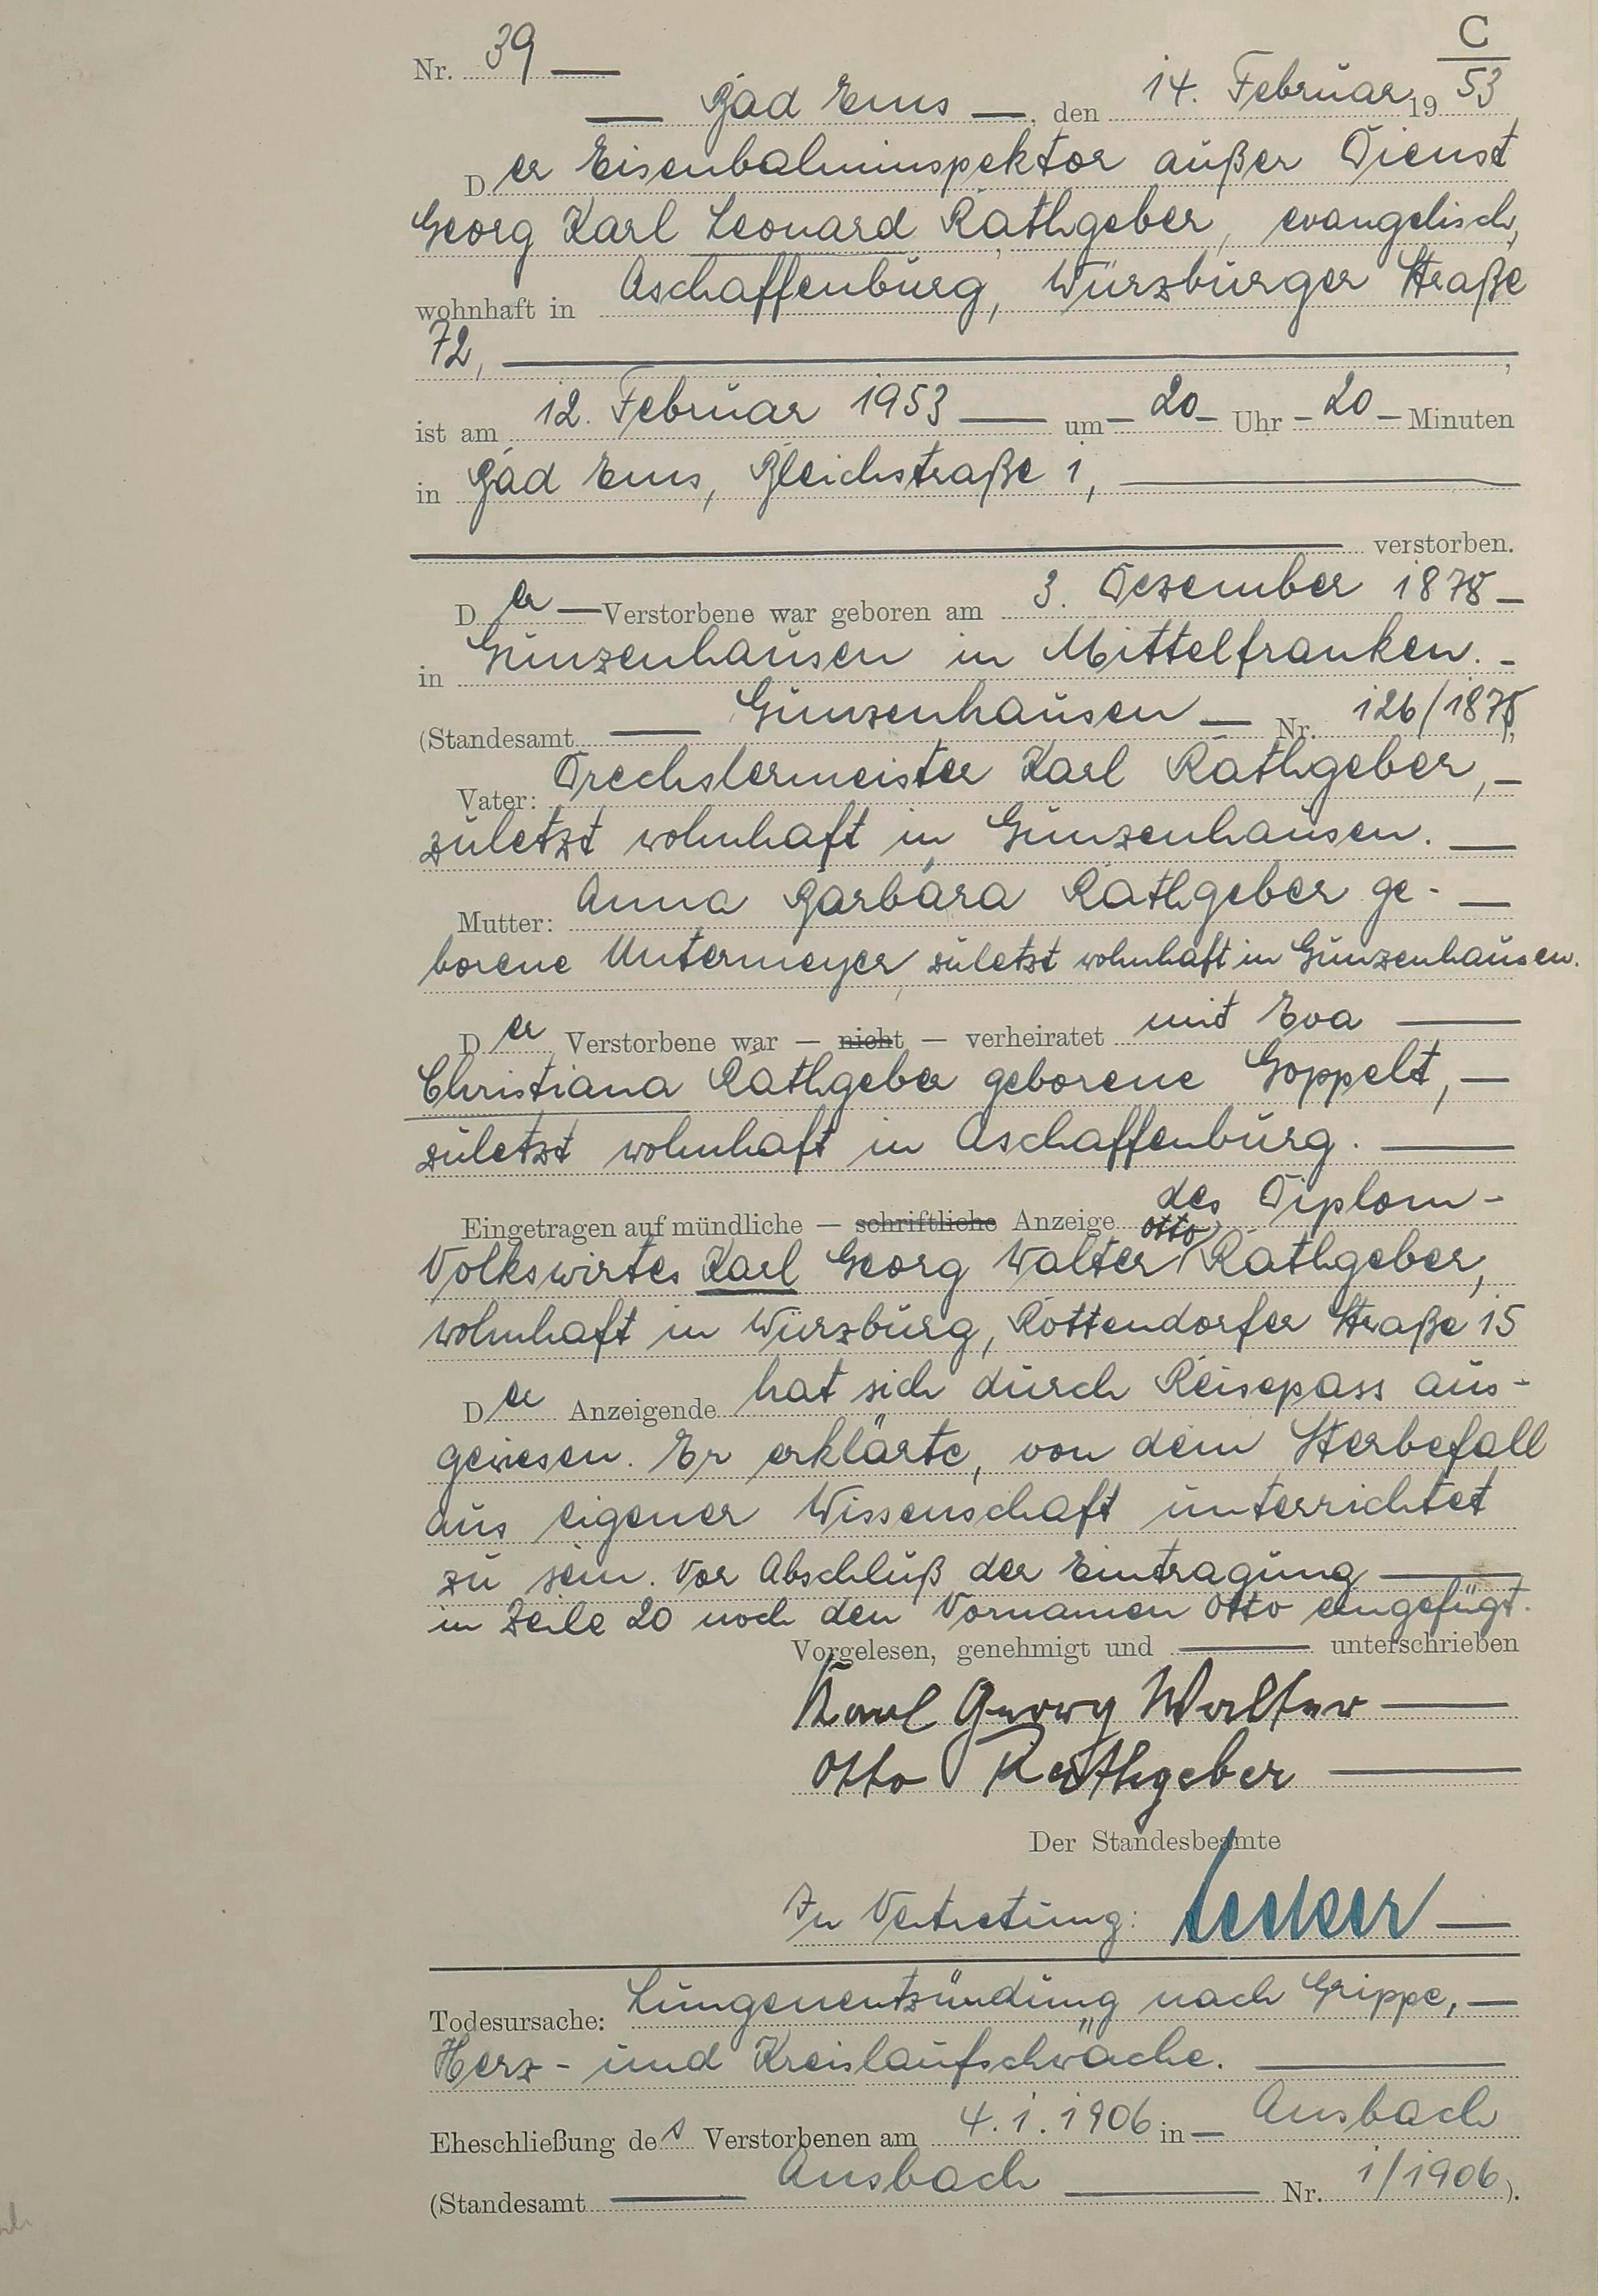 C
Nr. 39
Bad Ems, den 14. Februar 1953
Der Eisenbahninspektor außer Dienst
Georg Karl Leonard Rathgeber, evangelisch,
wohnhaft in Aschaffenburg, Würzburger Straße
72,
ist am 12. Februar 1953 um 20 Uhr 20 Minuten
in Bad Ems, Bleichstraße 1,
verstorben.
Der Verstorbene war geboren am 3. Dezember 1878
in Gunzenhausen in Mittelfranken.
(Standesamt Gunzenhausen Nr. 126/1878)
Vater: Drechslermeister Karl Rathgeber,
zuletzt wohnhaft in Gunzenhausen.
Mutter: Anna Barbara Rathgeber ge-
borene Untermeyer, zuletzt wohnhaft in Gunzenhausen.
Der Verstorbene war — nicht — verheiratet mit Eva
Christiana Rathgeber geborene Goppelt,
zuletzt wohnhaft in Aschaffenburg.
Eingetragen auf mündliche — schriftliche Anzeige des Diplom-
Otto
Volkswirtes Karl Georg Walter Rathgeber,
wohnhaft in Würzburg, Rottendorfer Straße 15
Der Anzeigende hat sich durch Reisepass aus-
gewiesen. Er erklärte, von dem Sterbefall
aus eigener Wissenschaft unterrichtet
zu sein. Vor Abschluß der Eintragung
in Zeile 20 noch den Vornamen Otto eingefügt.
Vorgelesen, genehmigt und unterschrieben
Karl Georg Walter
Otto Rathgeber
Der Standesbeamte
In Vertretung:
Todesursache: Lungenentzündung nach Grippe,
Herz- und Kreislaufschwäche.
Eheschließung des Verstorbenen am 4.1.1906 in Ansbach
(Standesamt Ansbach Nr. 1/1906).